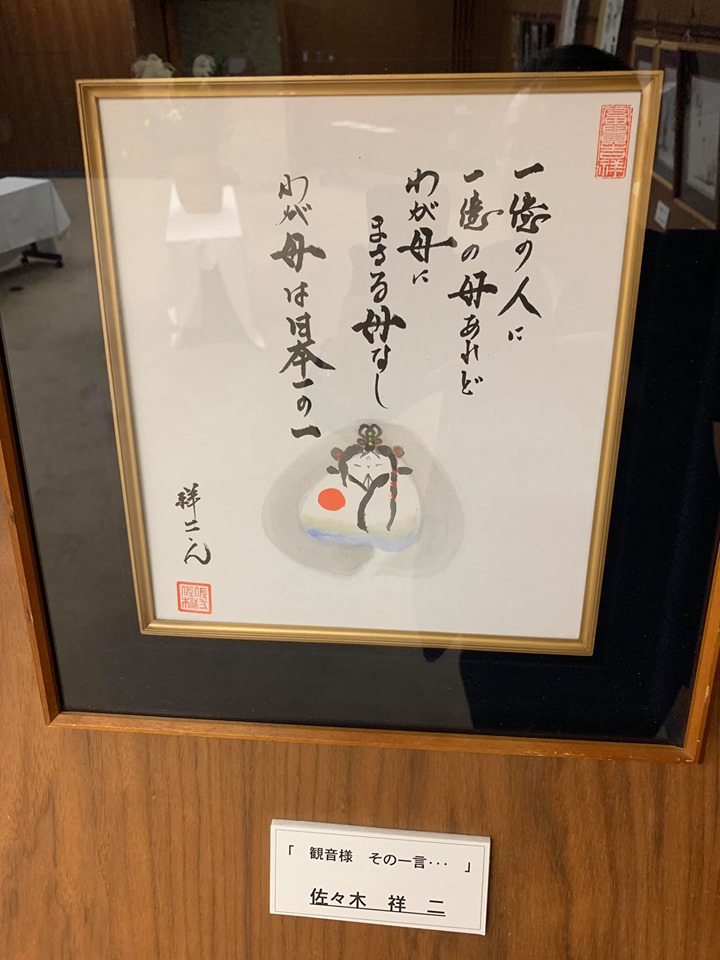 一億の人に
一億の母あれど
わが母に
まさる母なし
わが母は日本一の一
祥二
富貴吉祥
「 観音様 その一言・・・ 」
佐々木 祥 二